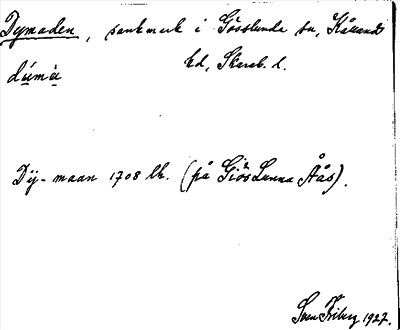 Dymaden, sankmark i Gösslunda sn, Kållands
hd, Skarab. l.
dúmà
Dÿ-maan 1708 lk. (på Giös Lunna Åås).
Sven Friberg 1927.